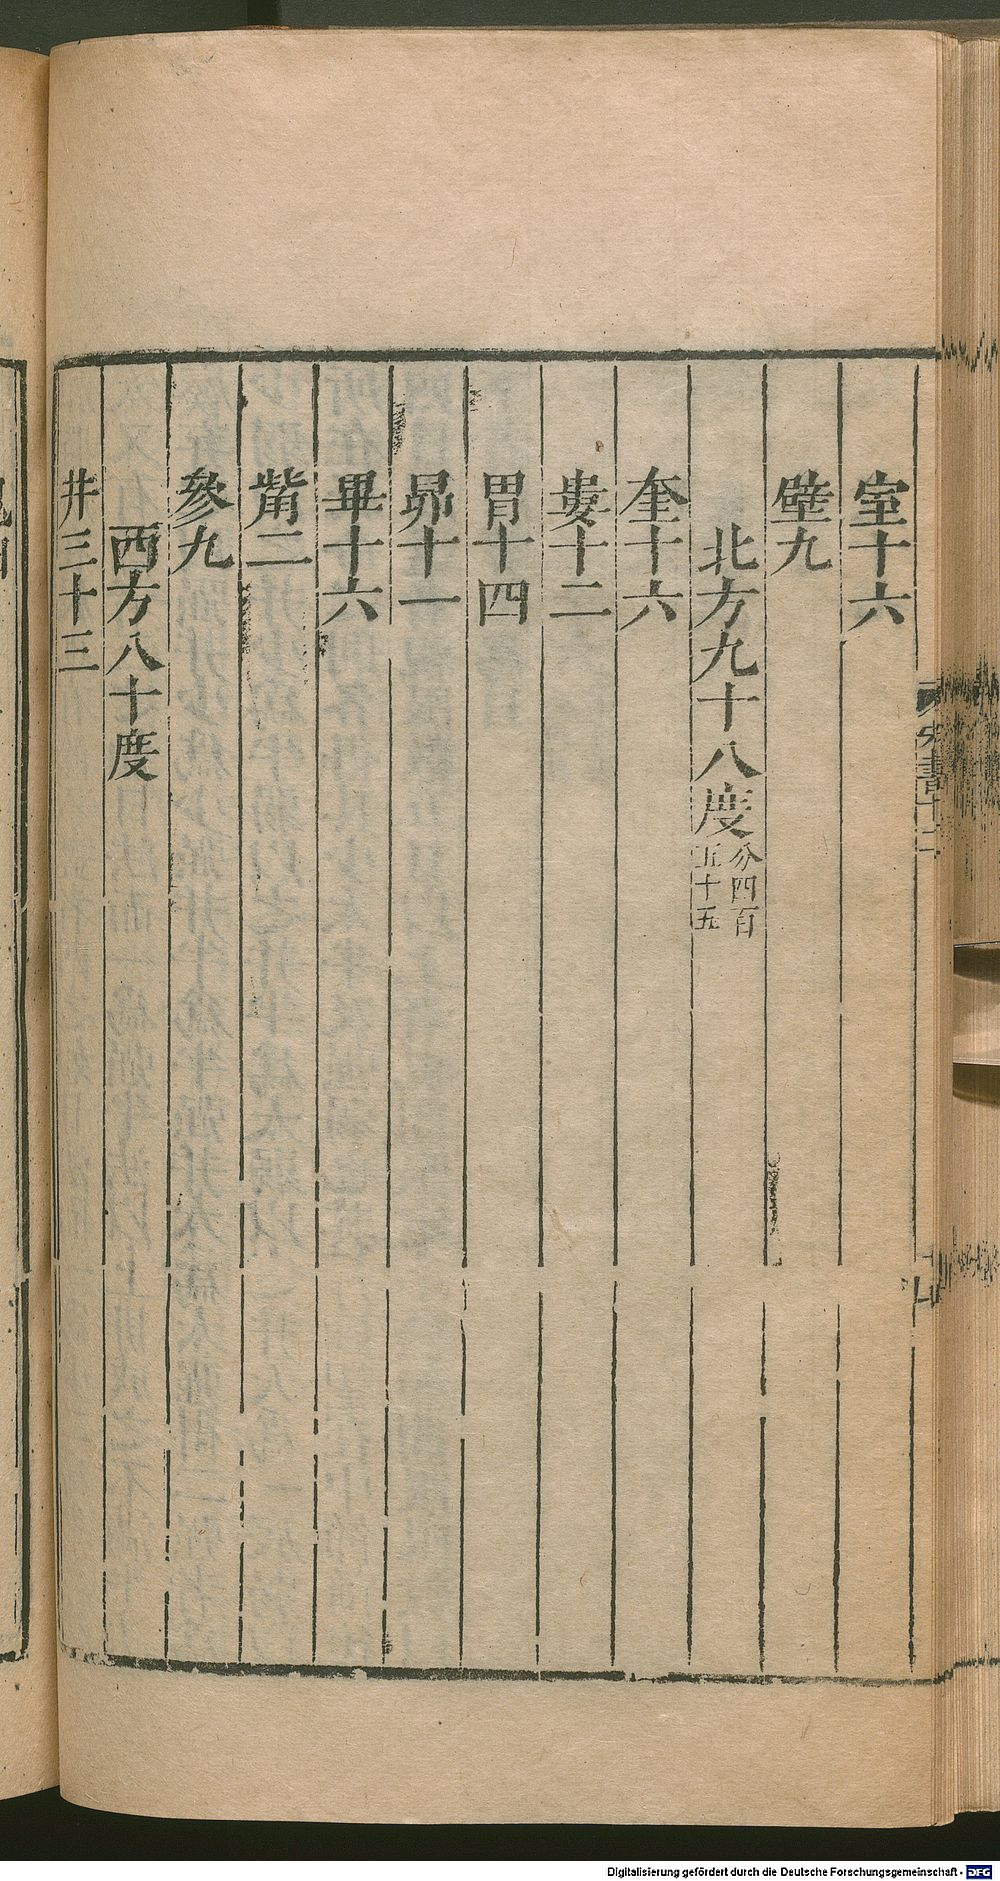 室十六
壁九
北方九十八度分四百五十五
奎十六
婁十二
胃十四
昴十一
畢十六
觜二
參九
西方八十度
井三十三
Digitalisierung gefördert durch die Deutsche Forschungsgemeinschaft - DFG